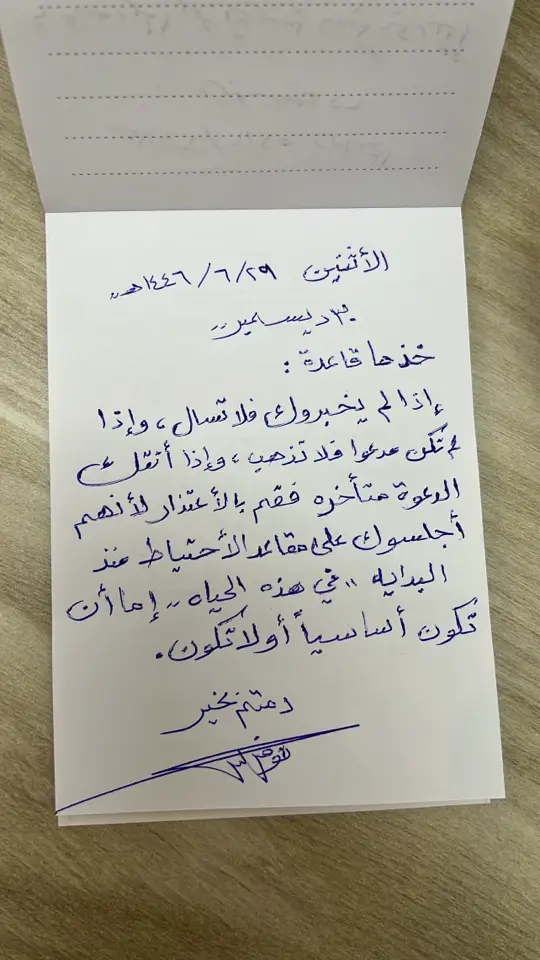 الأثنين ٢٩/٦/١٤٤٦هـ
٣٠ ديسمبر
خذها قاعدة :
إذا لم يخبروك فلا تسأل، وإذا
لم تكن مدعوا فلا تذهب، وإذا
الدعوة متأخره فقم بالأعتذار لأنهم
أجلسوك على مقاعد الأحتياط منذ
البدايه ,, في هذه الحياه ,, إما أن
تكون أساسياً أو لا تكون.
دمتم بخير